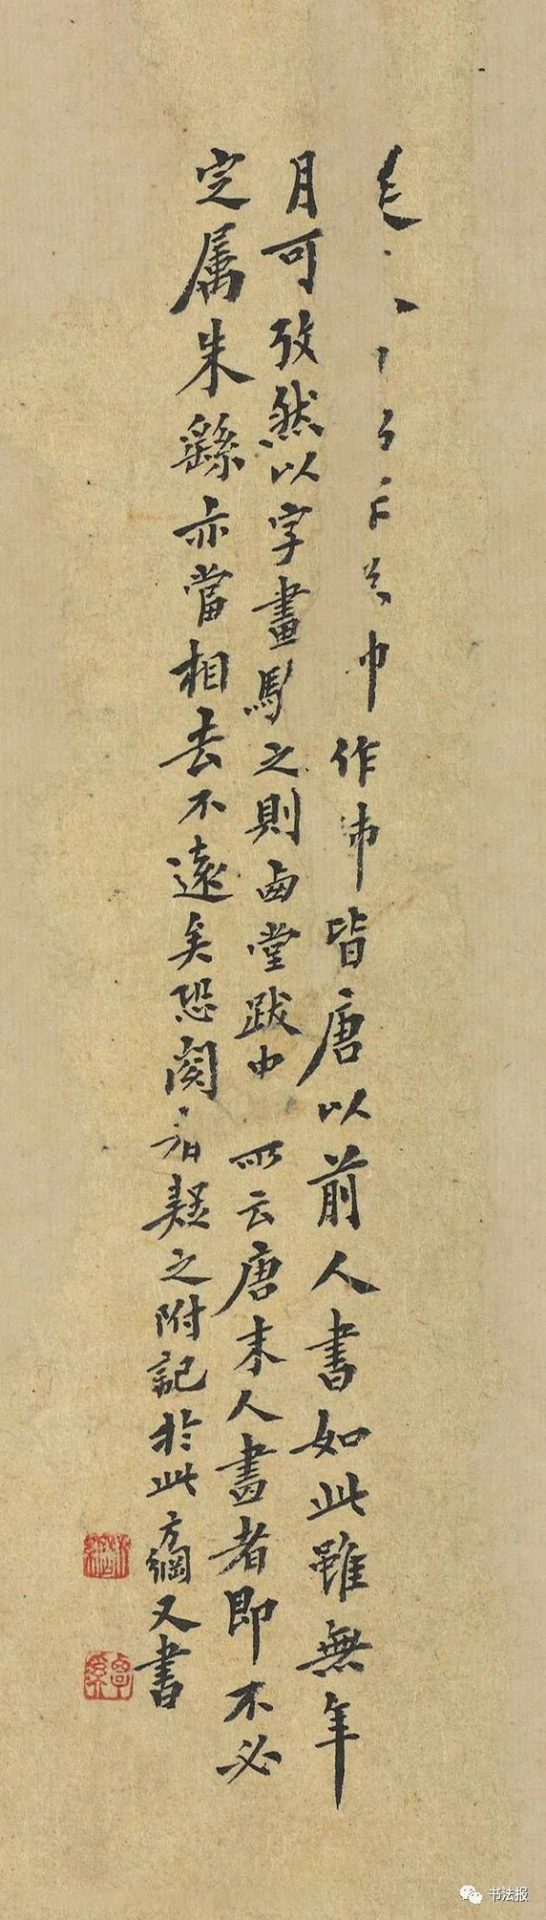 巾作帀皆唐以前人書如此雖無年
月可攷然以字畫騐之則卥堂跋中所云唐末人畫者即不必
定属朱繇亦當相去不遠矣恐閱者疑之附記於此方綱又書
书法报